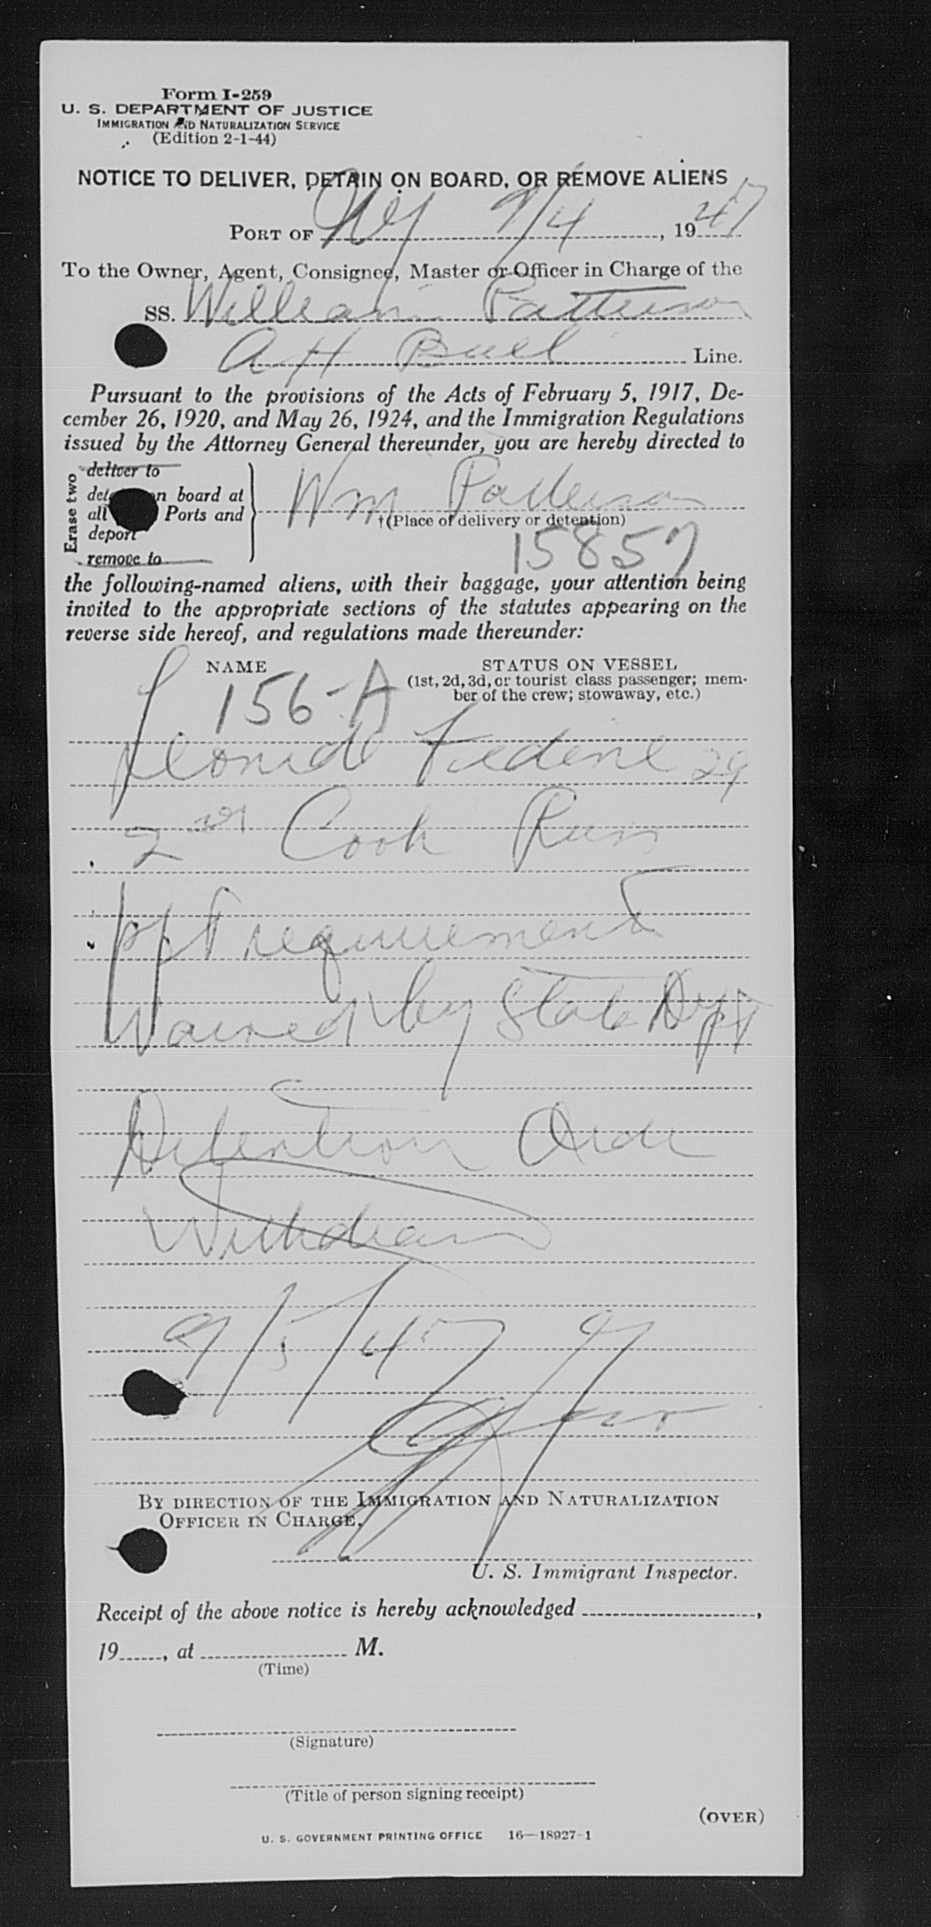 Form I-259
U. S. DEPARTMENT OF JUSTICE
IMMIGRATION AND NATURALIZATION SERVICE
(Edition 2-1-44)
NOTICE TO DELIVER, DETAIN ON BOARD, OR REMOVE ALIENS
PORT OF NY 9/4, 1947
To the Owner, Agent, Consignee, Master or Officer in Charge of the
SS. William Patterson
A H Bull Line.
Pursuant to the provisions of the Acts of February 5, 1917, De-
cember 26, 1920, and May 26, 1924, and the Immigration Regulations
issued by the Attorney General thereunder, you are hereby directed to
Erase two
deliver to
det n board at
all Ports and
deport
remove to
Wm Patterson
†(Place of delivery or detention)
15857
the following-named aliens, with their baggage, your attention being
invited to the appropriate sections of the statutes appearing on the
reverse side hereof, and regulations made thereunder:
NAME STATUS ON VESSEL
(1st, 2d, 3d, or tourist class passenger; mem-
ber of the crew; stowaway, etc.)
156-A
Leonid 29
2 Cook Russ
ppt requirement
Waived by State Dept
Detention Order
Withdrawn
9/5/47
BY DIRECTION OF THE IMMIGRATION AND NATURALIZATION
OFFICER IN CHARGE.
U. S. Immigrant Inspector.
Receipt of the above notice is hereby acknowledged ,
19 , at M.
(Time)
(Signature)
(Title of person signing receipt)
(OVER)
U. S. GOVERNMENT PRINTING OFFICE 16—18927-1